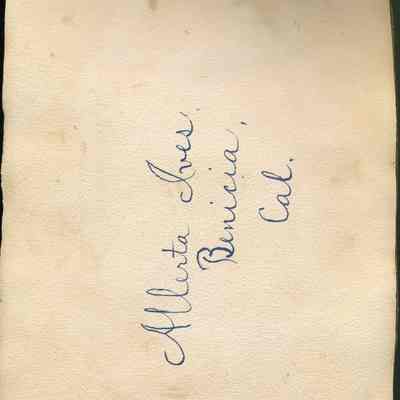 Alberta Ives.
Benicia,
Cal.